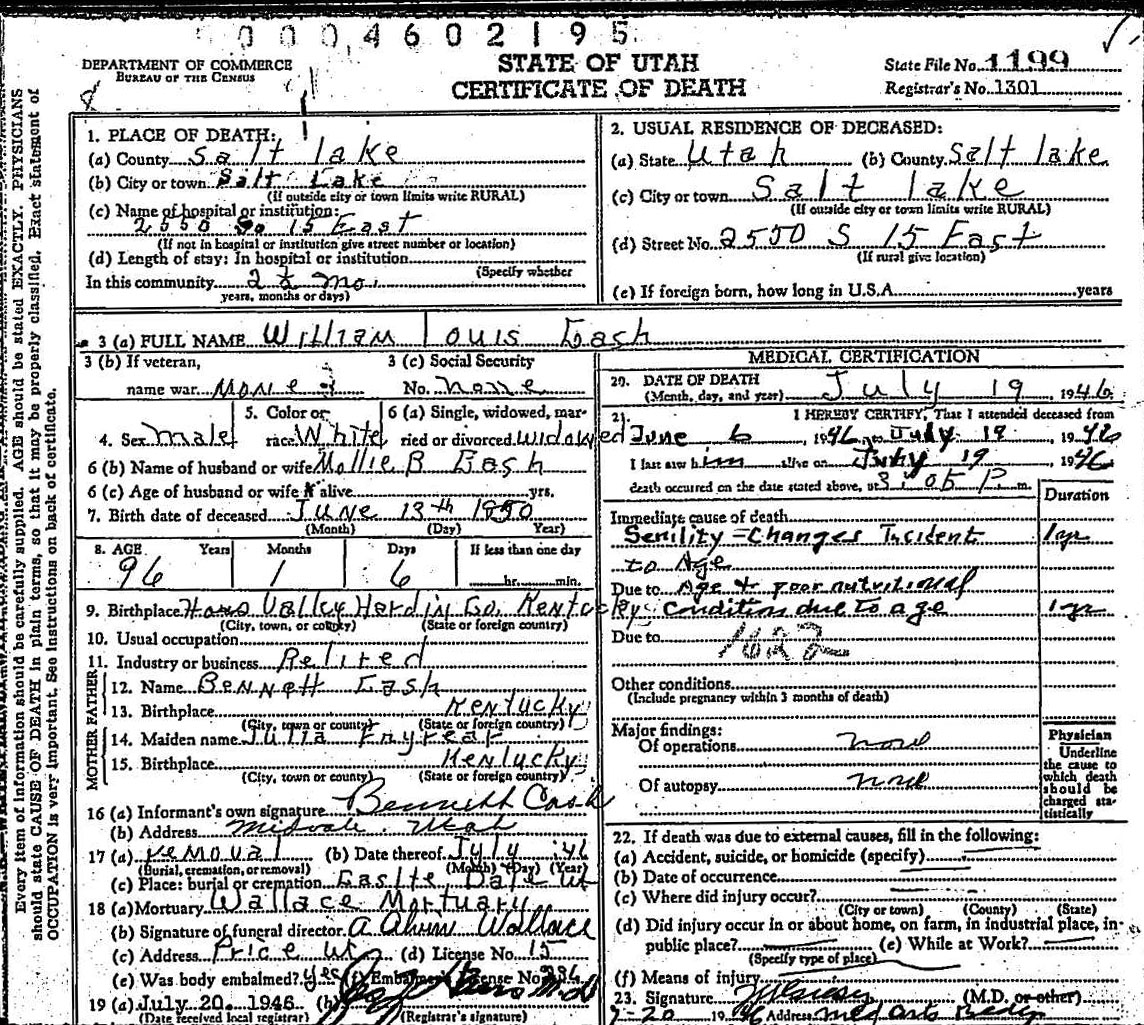 0 0 0 4 6 0 2 1 9 5
DEPARTMENT OF COMMERCE
BUREAU OF THE CENSUS
STATE OF UTAH
CERTIFICATE OF DEATH
State File No. 1199
Registrar's No. 1301
Every item of information should be carefully supplied. AGE should be stated EXACTLY. PHYSICIANS
should state CAUSE OF DEATH in plain terms, so that it may be properly classified. Exact statement of
OCCUPATION is very important. See instructions on back of certificate.
1. PLACE OF DEATH:
(a) County Salt Lake
(b) City or town Salt Lake
(If outside city or town limits write RURAL)
(c) Name of hospital or institution:
2550 So 15 East
(If not in hospital or institution give street number or location)
(d) Length of stay: In hospital or institution
(Specify whether
In this community 2 ½ mo.
years, months or days)
2. USUAL RESIDENCE OF DECEASED:
(a) State Utah (b) County Salt Lake
(c) City or town Salt Lake
(If outside city or town limits write RURAL)
(d) Street No. 2550 S 15 East
(If rural give location)
(e) If foreign born, how long in U.S.A. years
3 (a) FULL NAME William Louis Cash
3 (b) If veteran, 3 (c) Social Security
name war None No. none
4. Sex male 5. Color or race White 6 (a) Single, widowed, married or divorced widowed
6 (b) Name of husband or wife Mollie B Cash
6 (c) Age of husband or wife if alive yrs.
7. Birth date of deceased June 13th 1850
(Month) (Day) Year)
8. AGE Years Months Days If less than one day
96 1 6 hr. min.
9. Birthplace Valley Hardin Co. Kentucky
(City, town, or county) (State or foreign country)
10. Usual occupation
11. Industry or business Retired
FATHER
12. Name Bennett Cash
13. Birthplace Kentucky
(City, town or county) (State or foreign country)
MOTHER
14. Maiden name Julia
15. Birthplace Kentucky
(City, town or county) (State or foreign country)
16 (a) Informant's own signature Bennett Cash
(b) Address Midvale, Utah
17 (a) removal (b) Date thereof July 46
(Burial, cremation, or removal) (Month) (Day) (Year)
(c) Place: burial or cremation Castle Dale Ut
18 (a) Mortuary Wallace Mortuary
(b) Signature of funeral director A Alvin Wallace
(c) Address Price Ut (d) License No. 15
(e) Was body embalmed? yes (f) Embalmer's License No.
19 (a) July 20, 1946 (b)
(Date received local registrar) (Registrar's signature)
MEDICAL CERTIFICATION
20. DATE OF DEATH
(Month, day, and year) July 19 1946
21. I HEREBY CERTIFY, That I attended deceased from
June 6, 1946 to July 19, 1946
I last saw him alive on July 19, 1946
death occurred on the date stated above, at 3:05 P m.
Duration
Immediate cause of death
Senility - Changes Incident 1 yr
to Age
Due to Age & poor nutritional
Conditions due to age 1 yr
Due to 162
Other conditions
(Include pregnancy within 3 months of death)
Major findings:
Of operations none
Of autopsy none
Physician
Underline
the cause to
which death
should be
charged sta-
tistically
22. If death was due to external causes, fill in the following:
(a) Accident, suicide, or homicide (specify)
(b) Date of occurrence
(c) Where did injury occur?
(City or town) (County) (State)
(d) Did injury occur in or about home, on farm, in industrial place, in
public place? (e) While at Work?
(Specify type of place)
(f) Means of injury
23. Signature (M.D. or other)
7-20 1946 Address Med Arts Bldg